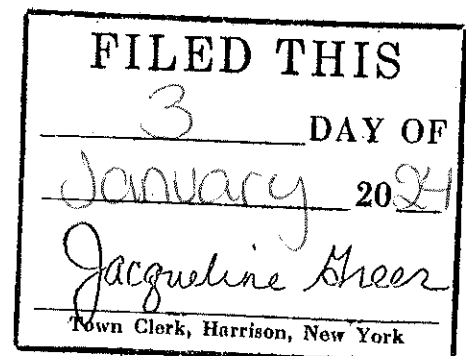 FILED THIS
3 DAY OF
January 2024
Jacqueline Greer
Town Clerk, Harrison, New York